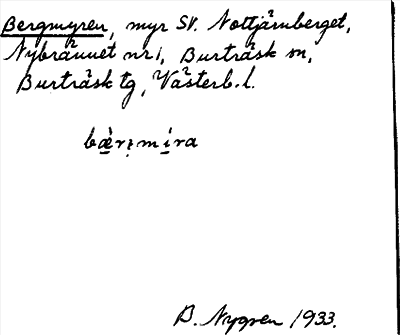 Bergmyren, myr SV. Nottjärnberget,
Nybrännet nr 1, Burträsk sn,
Burträsk tg, Västerb. l.
bæ̀rı̣mı̀ra
B. Nygren 1933.